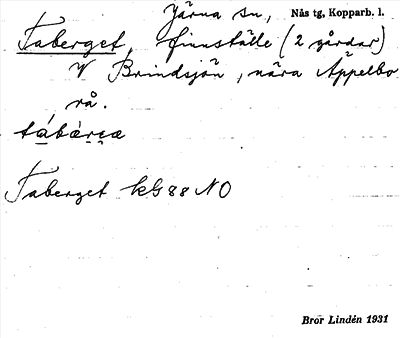 Järna sn, Nås tg, Kopparb. l.
Taberget, finnställe (2 gårdar)
V Brindsjön, nära Äppelbo
rå.
tábàrɛa
Taberget kG 88 NO
Bror Lindén 1931